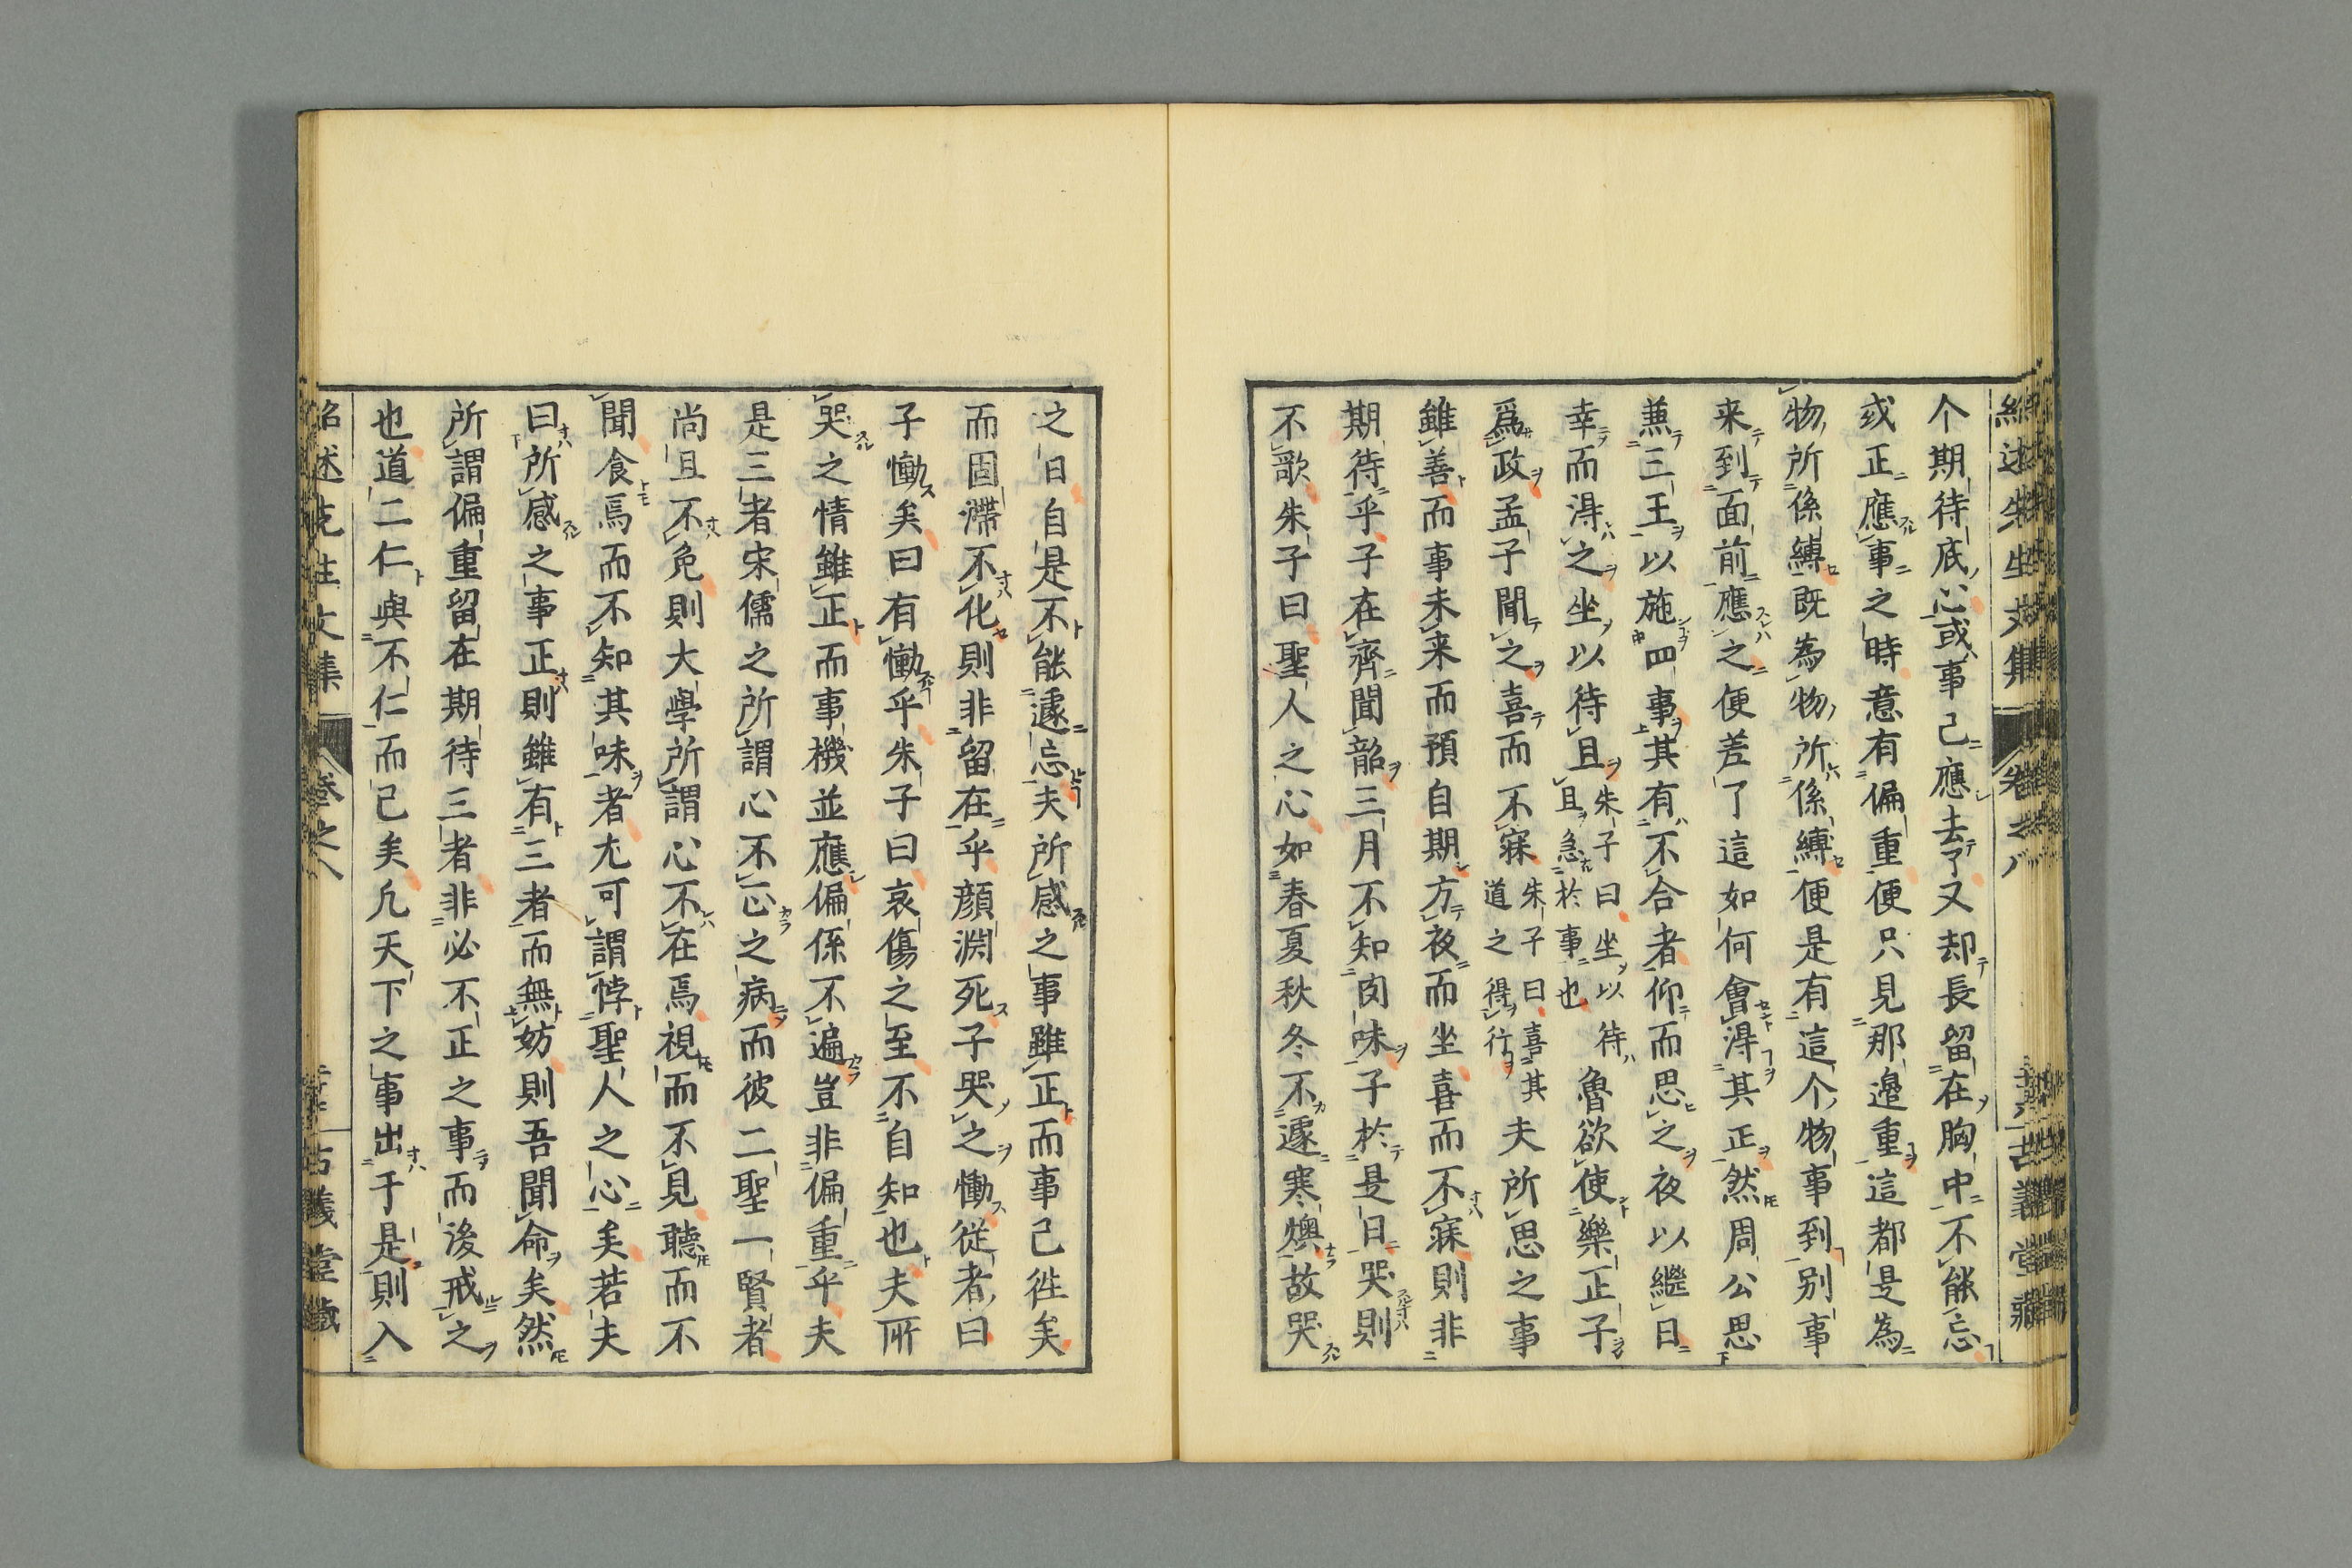 紹述先生文集 卷之八 古義堂藏
个期待底心或事已應去了又却長留在胸中不能忘
或正應事之時意有偏重便只見那邊重這都是為
物所係縛既為物所係縛便是有這个物事到别事
来到面前應之便差了這如何會得其正然周公思
兼三王以施四事其有不合者仰而思之夜以繼日
幸而得之坐以待且朱子曰坐以待且急於事也魯欲使樂正子
爲政孟子聞之喜而不寐朱子曰喜其道之得行夫所思之事
雖善而事未来而預自期方夜而坐喜而不寐則非
期待乎子在齊聞韶三月不知肉味子於是日哭則
不歌朱子曰聖人之心如春夏秋冬不遽寒燠故哭
之日自是不能遽忘夫所感之事雖正而事已往矣
而固滯不化則非留在乎顔淵死子哭之慟從者曰
子慟矣曰有慟乎朱子曰哀傷之至不自知也夫所
哭之情雖正而事機並應偏係不遍豈非偏重乎夫
是三者宋儒之所謂心不正之病而彼二聖一賢者
尚且不免則大學所謂心不在焉視而不見聽而不
聞食焉而不知其味者尤可謂悖聖人之心矣若夫
曰所感之事正則雖有三者而無妨則吾聞命矣然
所謂偏重留在期待三者非必不正之事而後戒之
也道二仁與不仁而已矣凢天下之事出于是則入
紹述先生文集 卷之八 古義堂藏